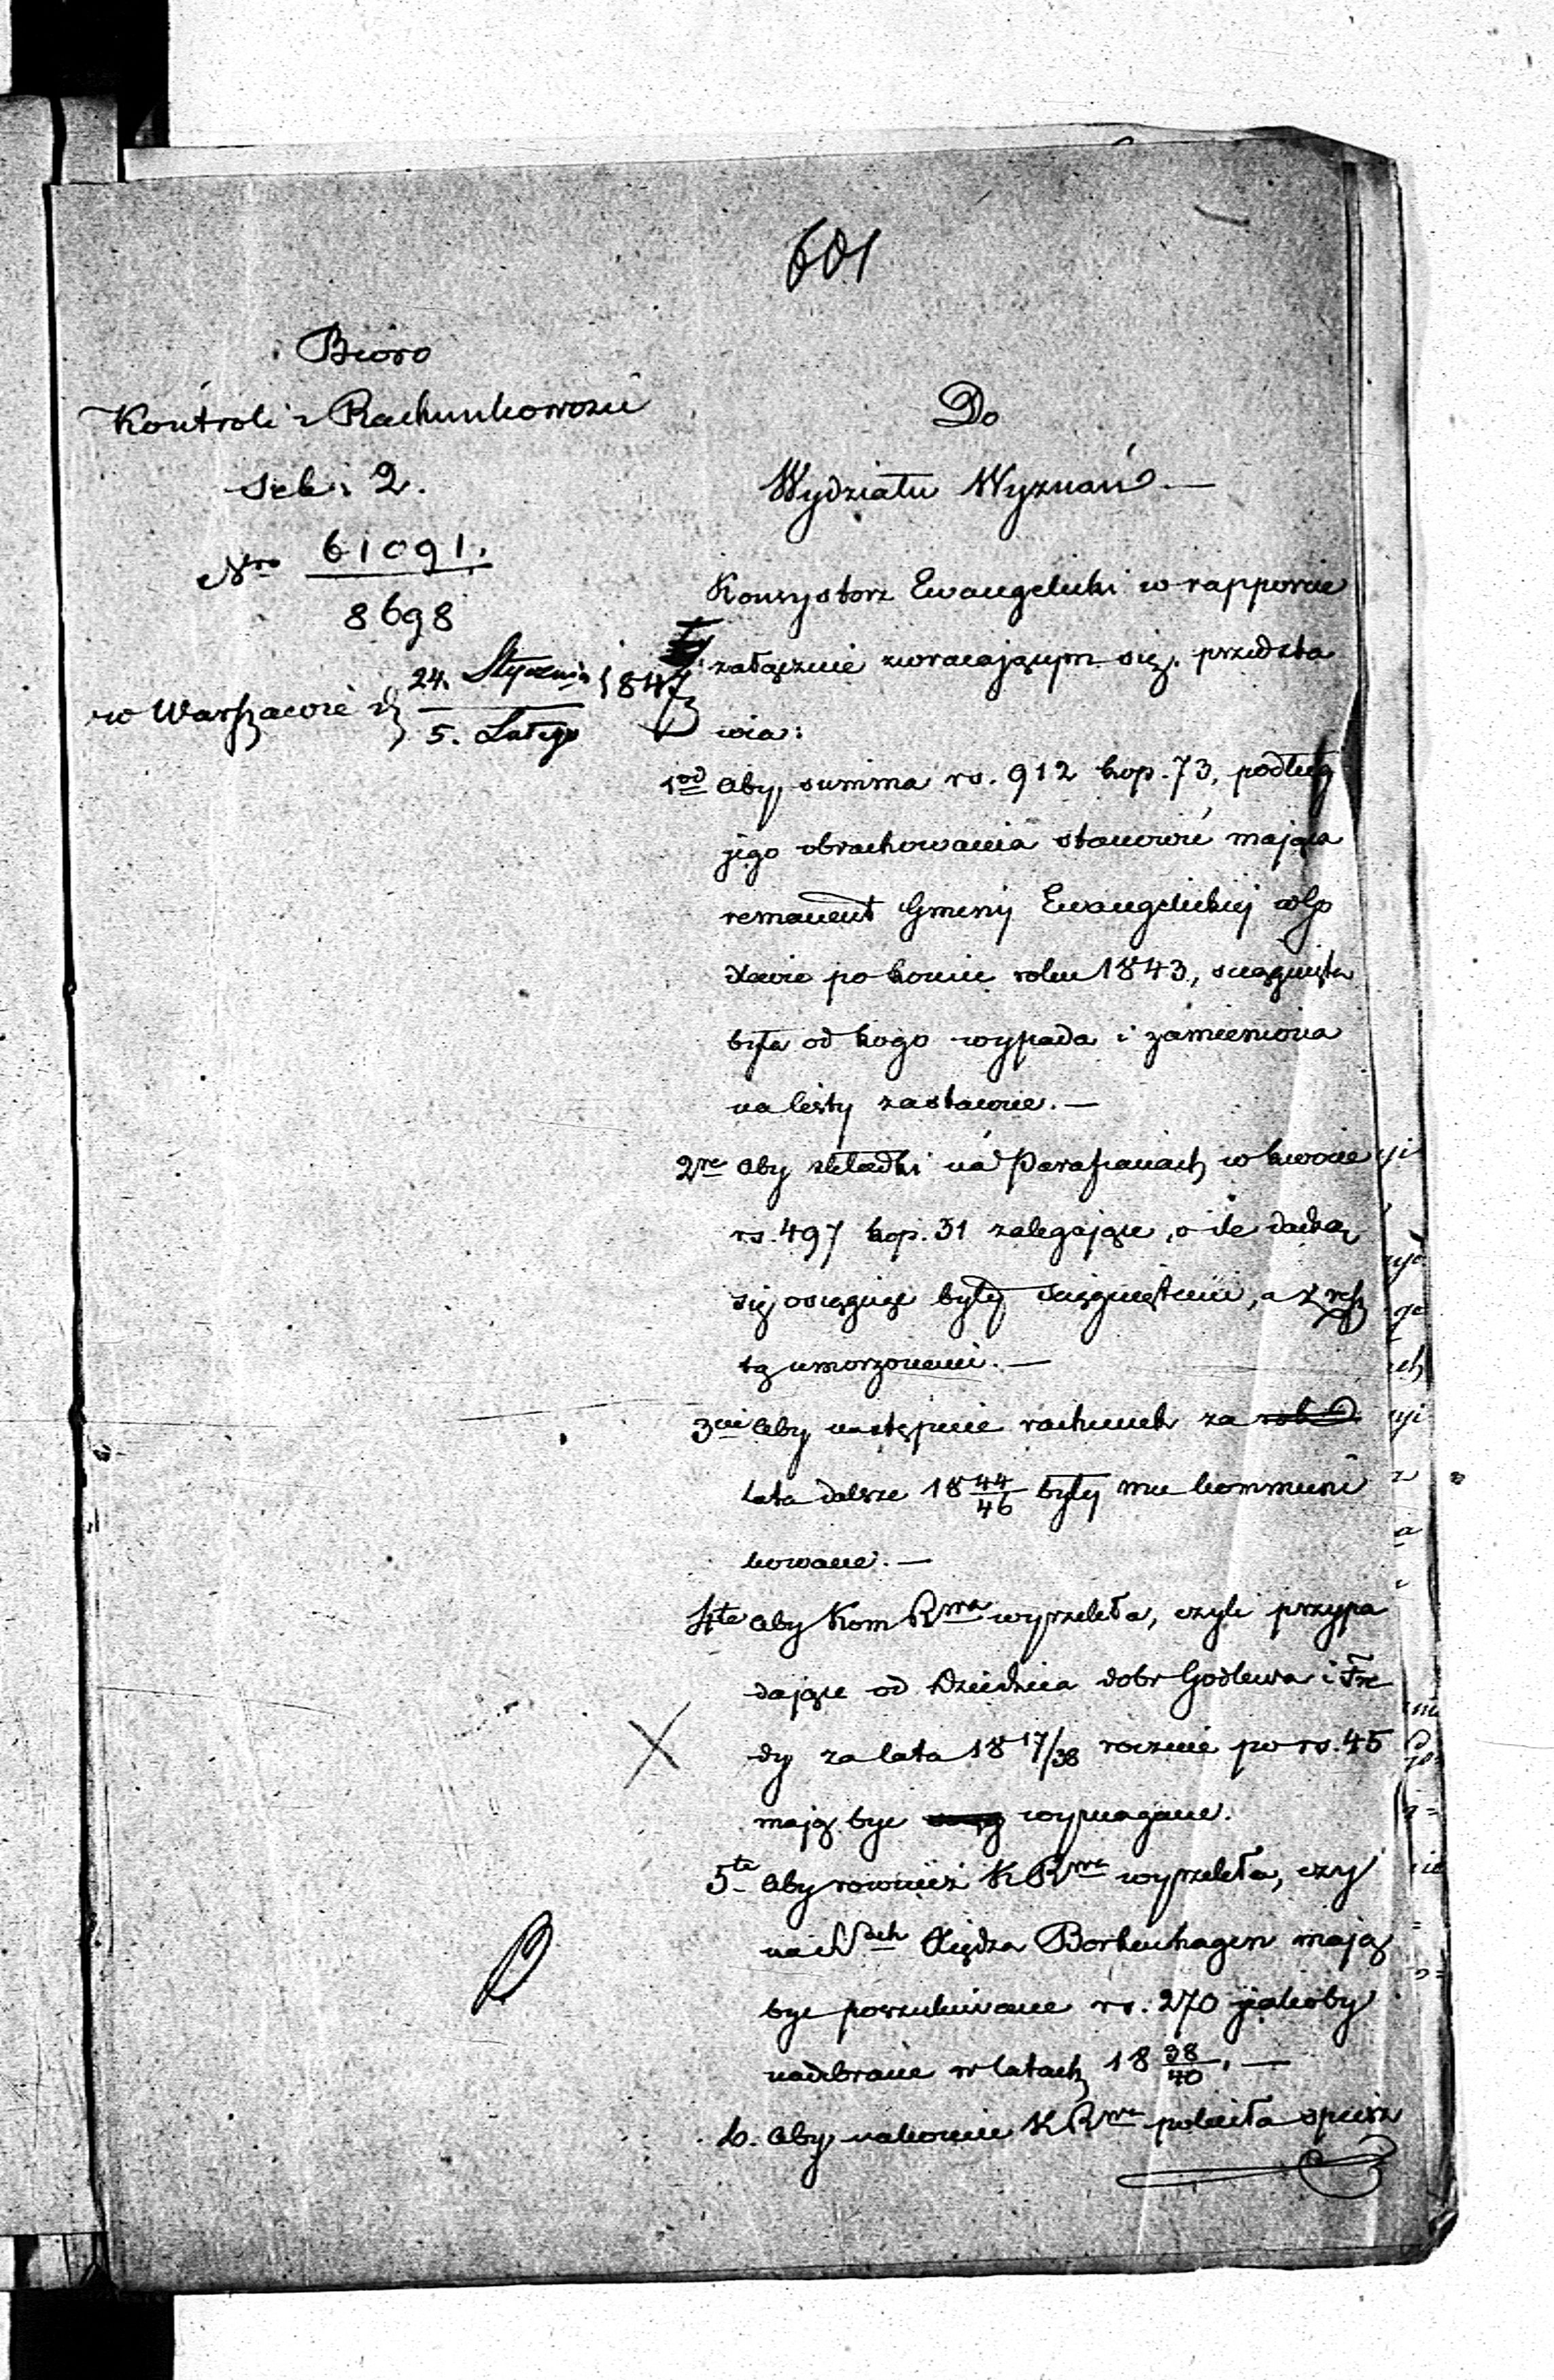 601
Biuro
Kontroli i Rachunkowości
Sek: 2.
Nro 61091.
8698
w Warszawie d. 24. Stycznia 1847
5. Lutego
Do
Wydziału Wyznań.—
Konsystorz Ewangelicki w rapporcie
załącznie zwracającym się, przedsta
wia:
1od aby summa rs. 912 kop. 73, podług
jego obrachowania stanowić mająca
remanent Gminy Ewangelickiej w Go
dlewie po koniec roku 1843, ściągnięta
była od kogo wypada i zamieniona
na listy zastawne.—
2re aby składki na Parafianach w kwocie
rs. 497 kop. 31 zalegające, o ile dadzą
się osiągnąć były ściągniętemi, a z resz
tą umorzonemi.—
3cie aby następnie rachunek za rok
lata dalsze 18 44/46 były mu kommuni
kowane.—
4te aby Kom Rwa wyrzekła, czyli przypa
dające od Dziedzica dobr Godlewa i Fre
dy za lata 18 17/38 rocznie po rs. 45
mają być wymagane.
5te aby rownież K Rwa wyrzekła, czy
na Sch Xiędza Borkenhagen mają
być poszukiwane rs. 270 jakoby
nadebrane w latach 18 38/40.—
6. aby nakoniec K Rwa poleciła spiesz